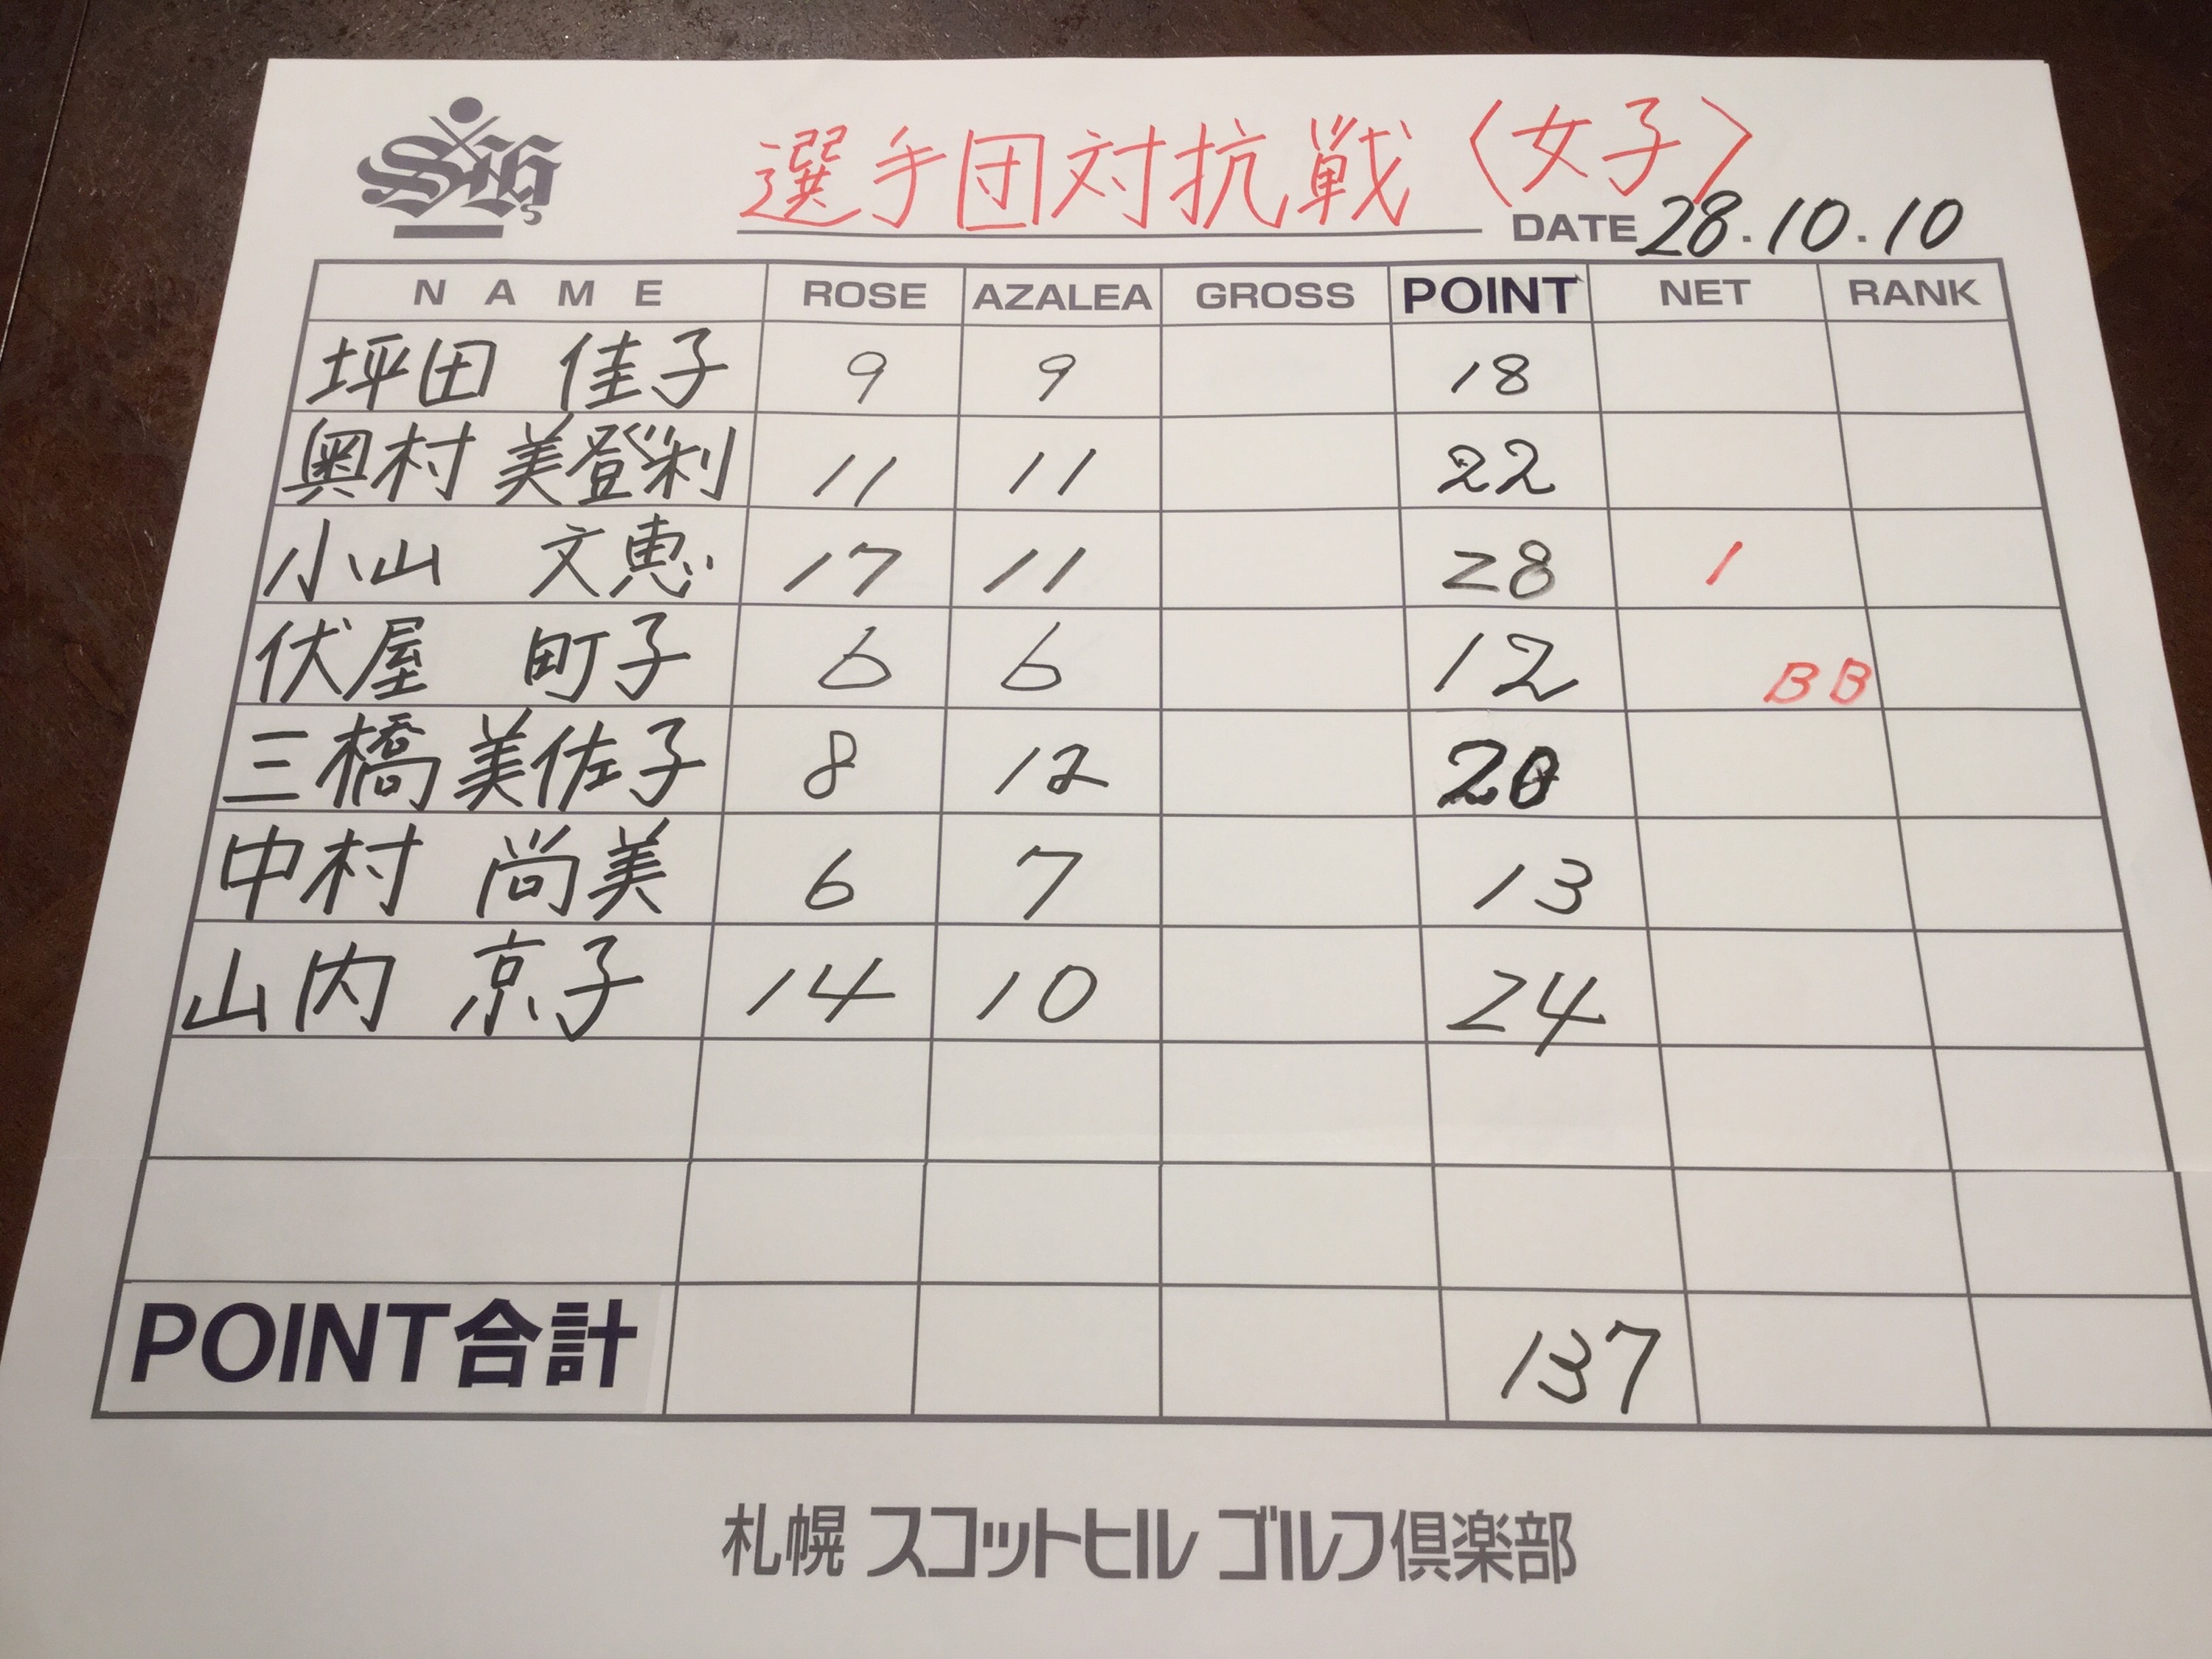 SHG
選手団対抗戦〈女子〉
DATE 28.10.10
NAME ROSE AZALEA GROSS POINT NET RANK
坪田 佳子 9 9 18
奥村 美登利 11 11 22
小山 文恵 17 11 28 1
伏屋 町子 6 6 12 BB
三橋 美佐子 8 12 20
中村 尚美 6 7 13
山内 京子 14 10 24
POINT合計 137
札幌 スコットヒル ゴルフ倶楽部